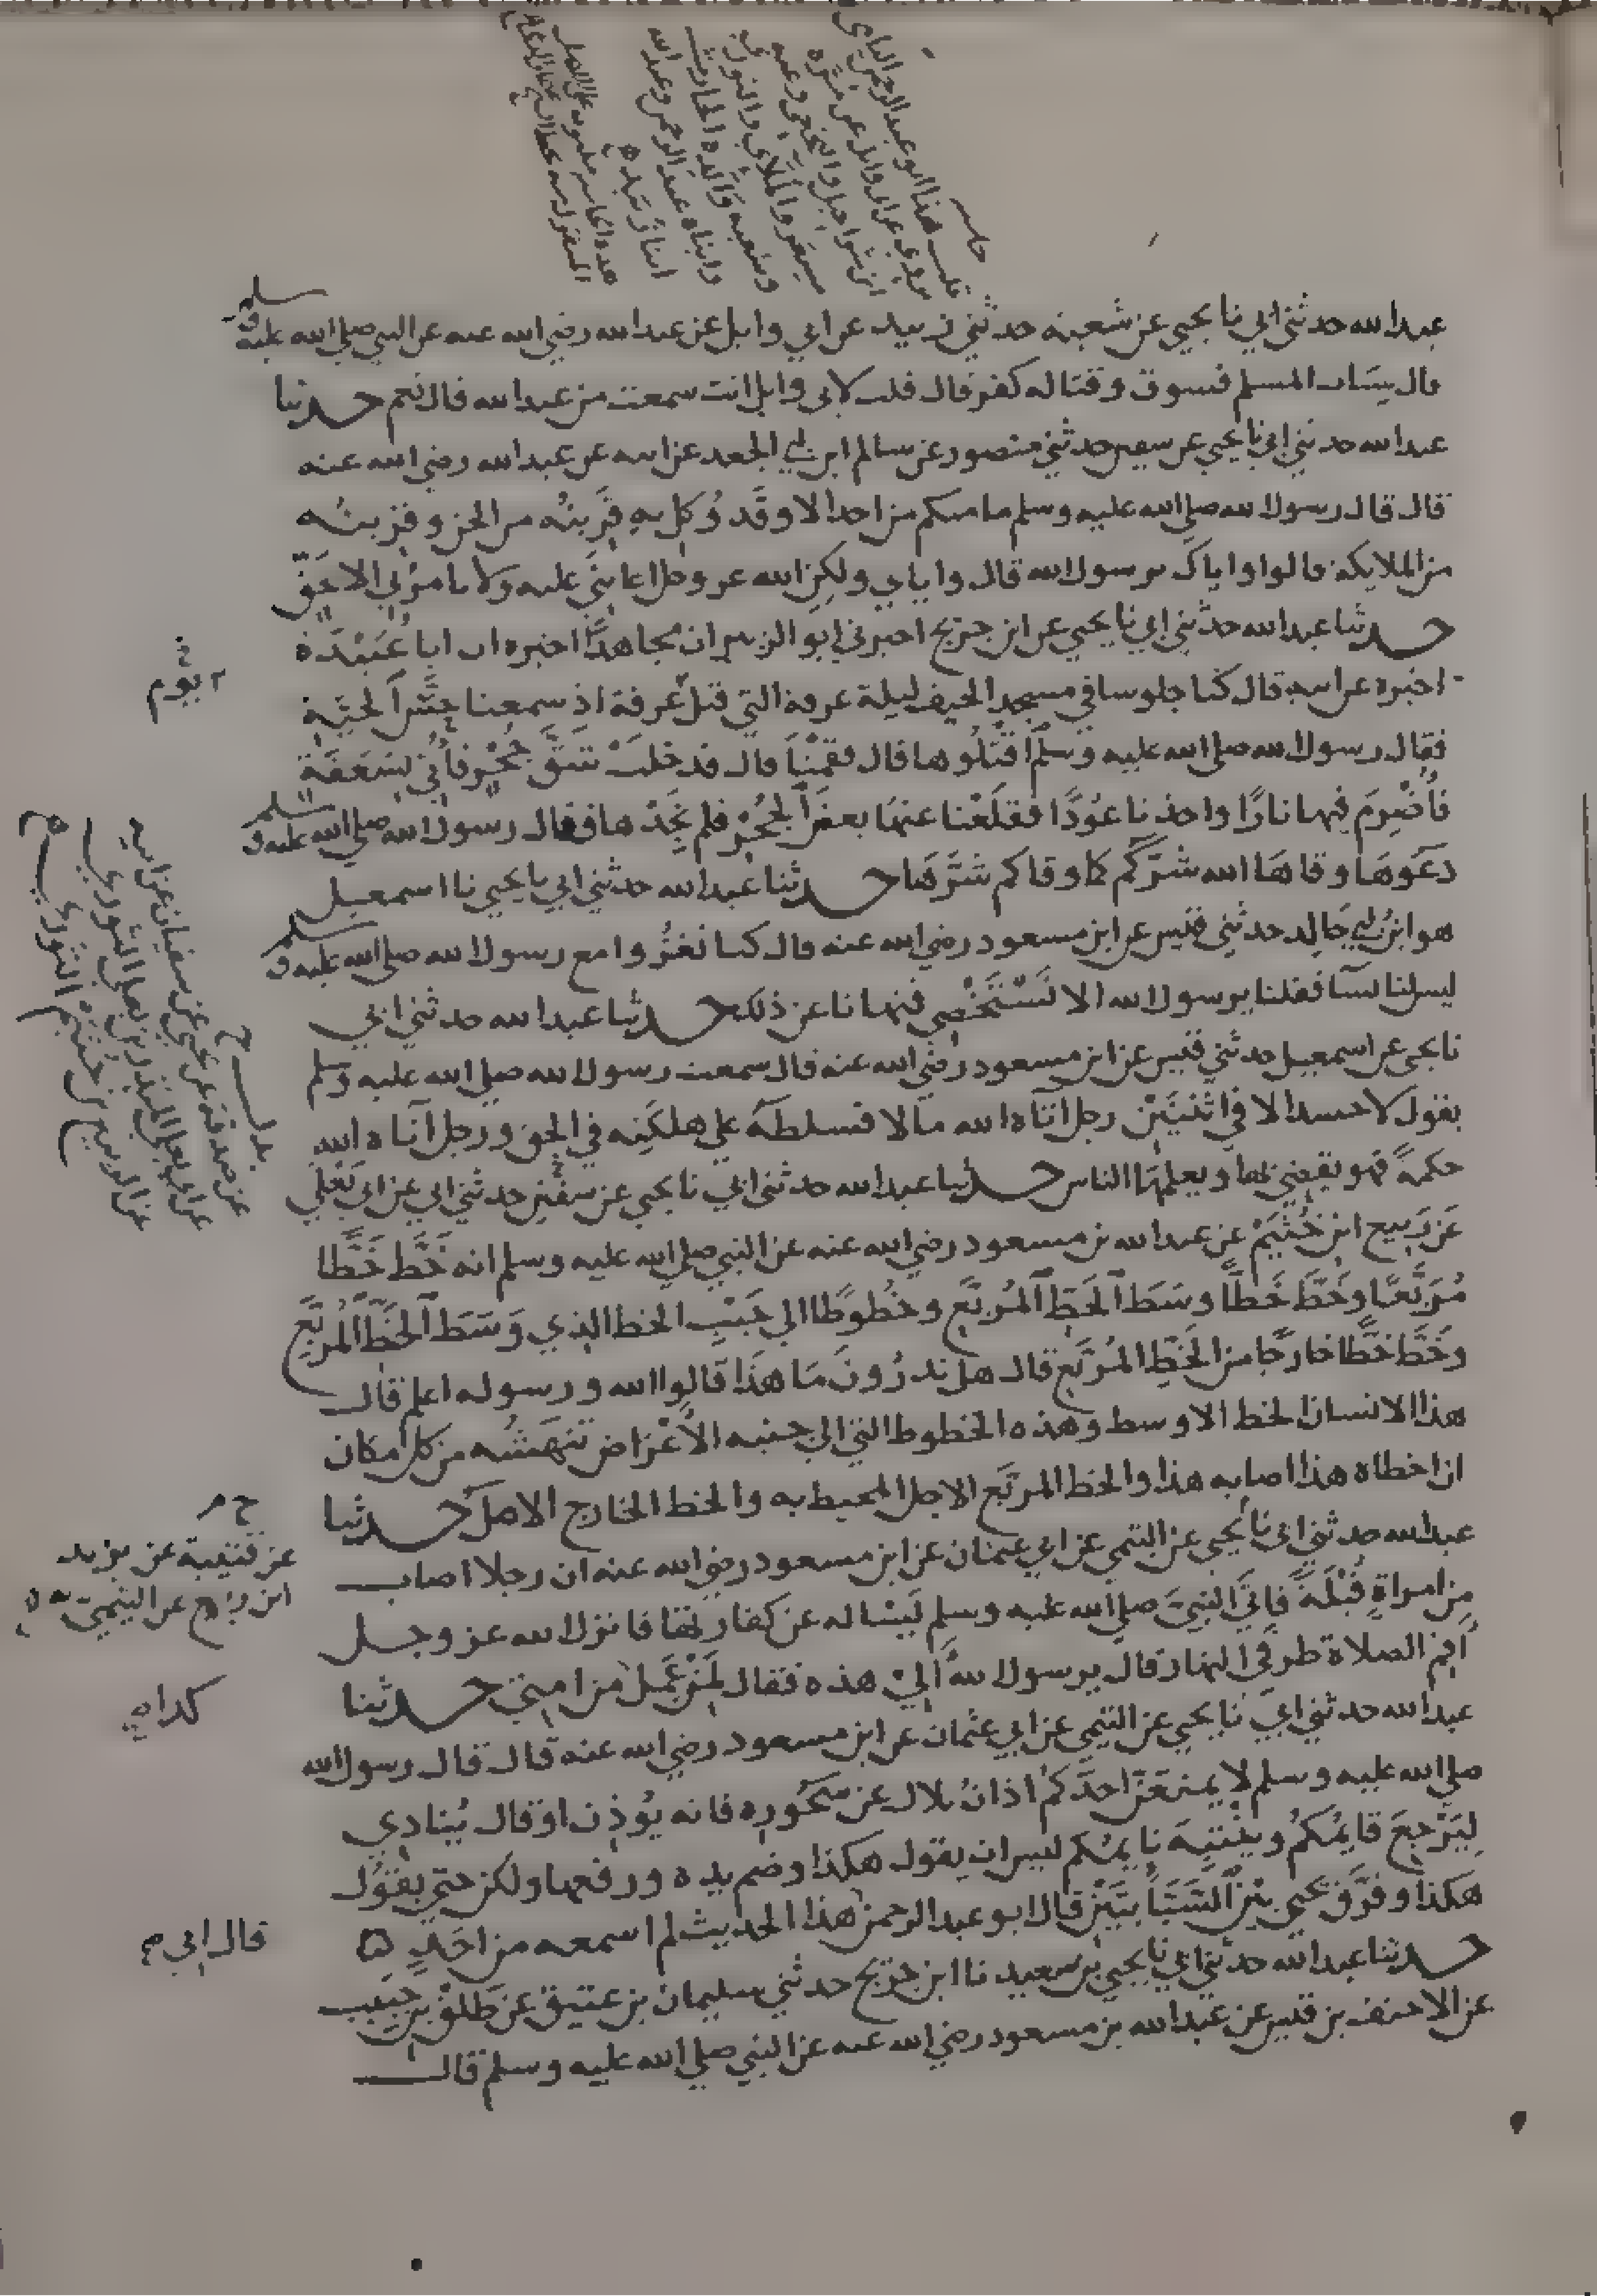 عبدالله حدثني ابي نا يحيى عن شعبة حدثني زبيد عن ابي وايل عن عبدالله رضي الله عنه عن النبي صلى الله عليه وسلم
قال سباب المسلم فسوق وقتاله كفر قال قلت لابي وايل انت سمعت من عبدالله قال نعم حدثنا
عبدالله حدثني ابي نا يحيى عن سفين حدثني منصور عن سالم ابن ابي الجعد عن ابيه عن عبدالله رضي الله عنه
قال قال رسول الله صلى الله عليه وسلم ما منكم من احد الا وقد وُكل به قرينُه من الجن وقرينُه
من الملايكة قالوا واياك يرسول الله قال واياي ولكن الله عز وجل اعانني عليه ولا يامرُني الا بحقّ
حدثنا عبدالله حدثني ابي نا يحيى عن ابن جريج اخبرني ابو الزبير ان مجاهدًا اخبره ان ابا عُبَيْدَة
اخبره عن ابيه قال كنا جلوسا في مسجد الخيف ليلة عرفة التي قبل عرفة اذ سمعنا حِسَّ الحيّة
فقال رسول الله صلى الله عليه وسلم اقتُلُوها قال فقمْنا قال فدخلَتْ شَقَّ جُحْرٍ فأُتي بسَعَفَةٍ
فأُضْرِمَ فيها نارًا واخذنا عُودًا فقلَعْنا عنها بعضَ الجُحْر فلم نَجِدْها فقال رسول الله صلى الله عليه وسلم
دَعَوهَا وقاهَا الله شرَّكُم كما وقاكم شَرَّهَا حدثنا عبدالله حدثني ابي نا يحيى نا اسمعيل
هو ابنُ ابي خالد حدثني قيس عن ابن مسعود رضي الله عنه قال كنا نغزُوا مع رسول الله صلى الله عليه وسلم
ليس لنا نسآ فقلنا يرسول الله الا نَسْتَخْصِي فنهانا عن ذلك حدثنا عبدالله حدثني ابي
نا يحيى عن اسمعيل حدثني قيس عن ابن مسعود رضي الله عنه قال سمعت رسول الله صلى الله عليه وسلم
يقول لا حسد الا في اثنتَيْن رجل اتاه الله مالا فسلطه على هلكَتِه في الحق ورجل آتاه الله
حكمةً فهو يقضي بها ويعلمُها الناس حدثنا عبدالله حدثني ابي نا يحيى عن سفين حدثني ابي عن ابي يَعْلَى
عن رَبيع ابن خُثَيْمٍ عن عبدالله بن مسعود رضي الله عنه عن النبي صلى الله عليه وسلم انه خَطَّ خَطًّا
مُرَبَّعًا وخَطَّ خَطًّا وسَطَ الخَطّ المُرَبَّع وخُطُوطًا الى جَنْبِ الخط الذي وَسَطَ الخَطِّ المُرَبَّع
وخَطَّ خطًّا خارجًا من الخَطِ المُرَبَّع قال هل تدرُونَ مَا هَذَا قالوا الله ورسوله اعلم قال
هذا الانسان الخط الاوسط وهذه الخطوط التي الى جنبه الأعْرَاض تَنْهَشُه من كل مكان
ان اخطاه هذا اصابه هذا والخط المربَّع الاجل المحيط به والخط الخارج الامل حدثنا
عبدالله حدثني ابي نا يحيى عن التيمي عن ابي عثمان عن ابن مسعود رضي الله عنه ان رجلا اصاب
مِن امراةٍ قُبْلَةً فاتَى النبيَ صلى الله عليه وسلم يَسْاله عن كفارتها فانزل الله عز وجل
اقِم الصلاة طرفَي النهار قال يرسول الله أَلِيَ هذه فقال لِمَنْ عَمِلَ من امتي حدثنا
عبدالله حدثني ابي نا يحيى عن التيمي عن ابي عثمان عن ابن مسعود رضي الله عنه قال قال رسول الله
صلى الله عليه وسلم لا يمنعَنَّ احدَكُم اذانُ بلال عن سَحُوره فانه يُوذن او قال يُنادي
لِيَرْجِعَ قايمُكُم وينْتبِهَ نايمُكم ليس ان يقول هكذا وضم يده ورفعها ولكن حتى يقُول
هكذا وفرَّق يحيى بيْنَ السَّبَّابتَيْنِ قال ابو عبدالرحمن هذا الحديث لم اسمعه من احَدٍ
حدثنا عبدالله حدثني ابي نا يحيى بن سعيد نا ابن جريج حدثني سليمان بن عتيق عن طَلْق بن حَبيب
عن الاحنف بن قيس عن عبدالله بن مسعود رضي الله عنه عن النبي صلى الله عليه وسلم قال
يوم
عن قتيبة عن يزيد
ابن زريع عن التيمي
كذا
قال ابي